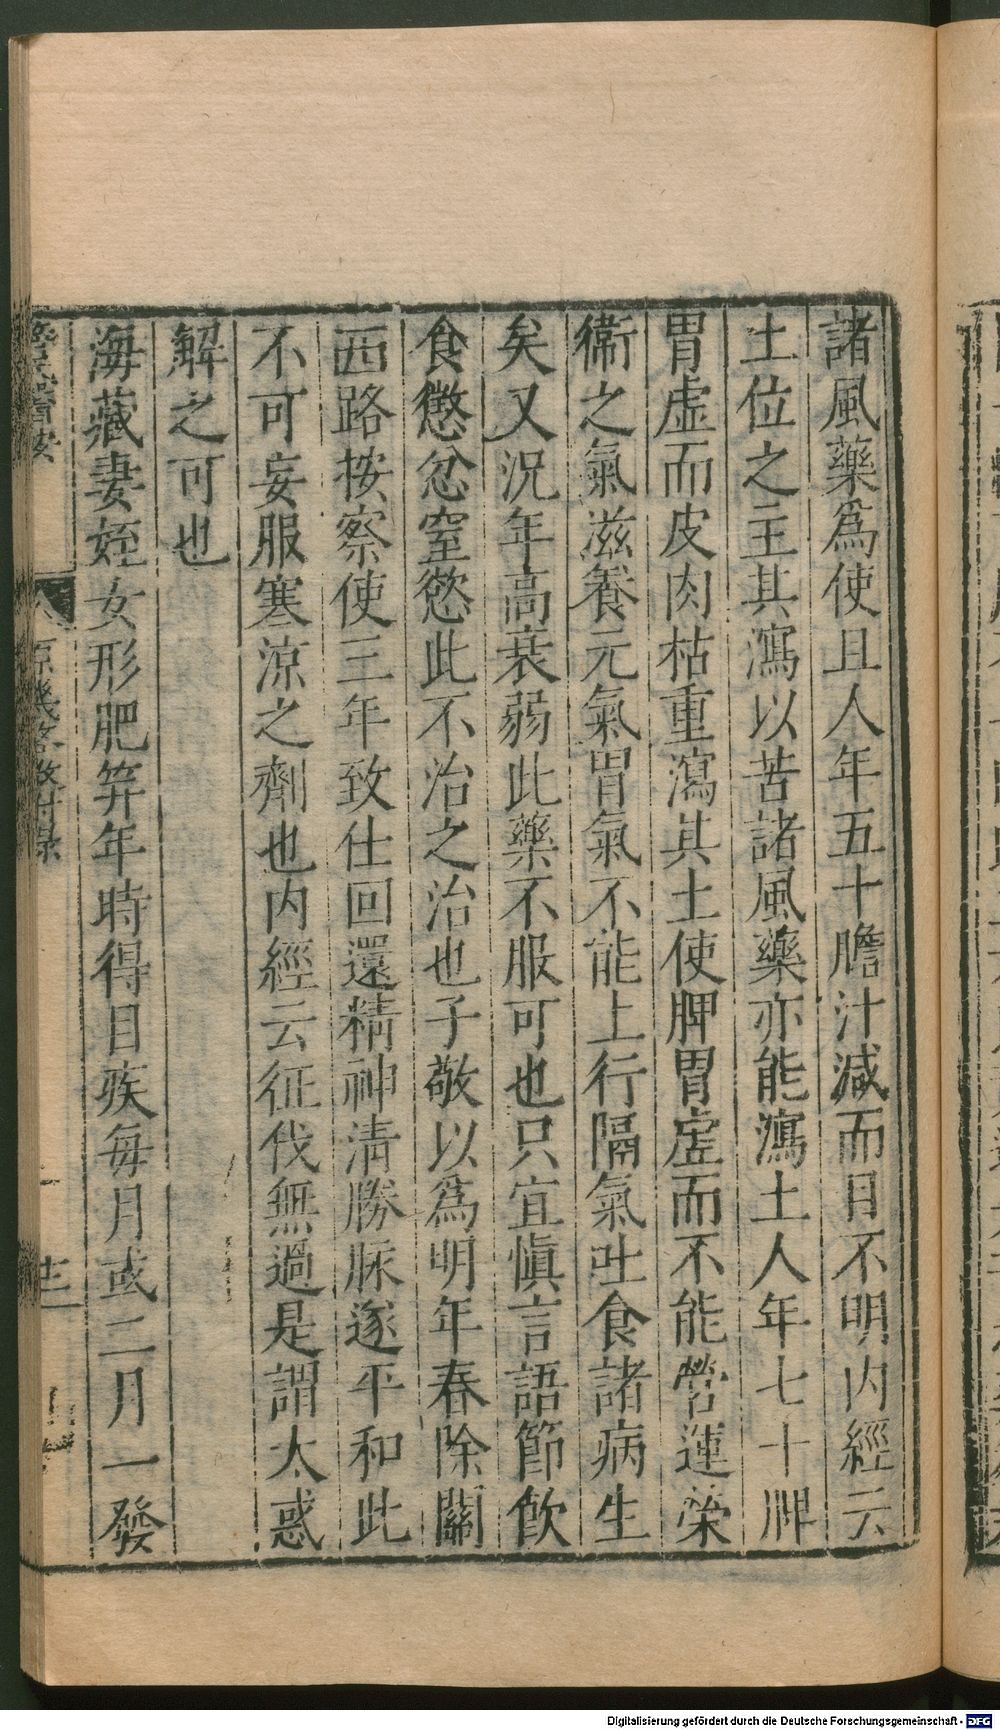 諸風藥爲使且人年五十膽汁減而目不明内經云
土位之主其瀉以苦諸風藥亦能瀉土人年七十脾
胃虚而皮肉枯重瀉其土使脾胃虚而不能營運榮
衛之氣滋養元氣胃氣不能上行隔氣吐食諸病生
矣又況年高衰弱此藥不服可也只宜慎言語節飲
食懲忿窒慾此不治之治也子敬以爲明年春除關
西路按察使三年致仕回還精神清勝脉遂平和此
不可妄服寒涼之劑也内經云征伐無過是謂太惑
解之可也
海藏妻姪女形肥笄年時得目疾每月或二月一發
原機啓微附録
Digitalisierung gefördert durch die Deutsche Forschungsgemeinschaft - DFG